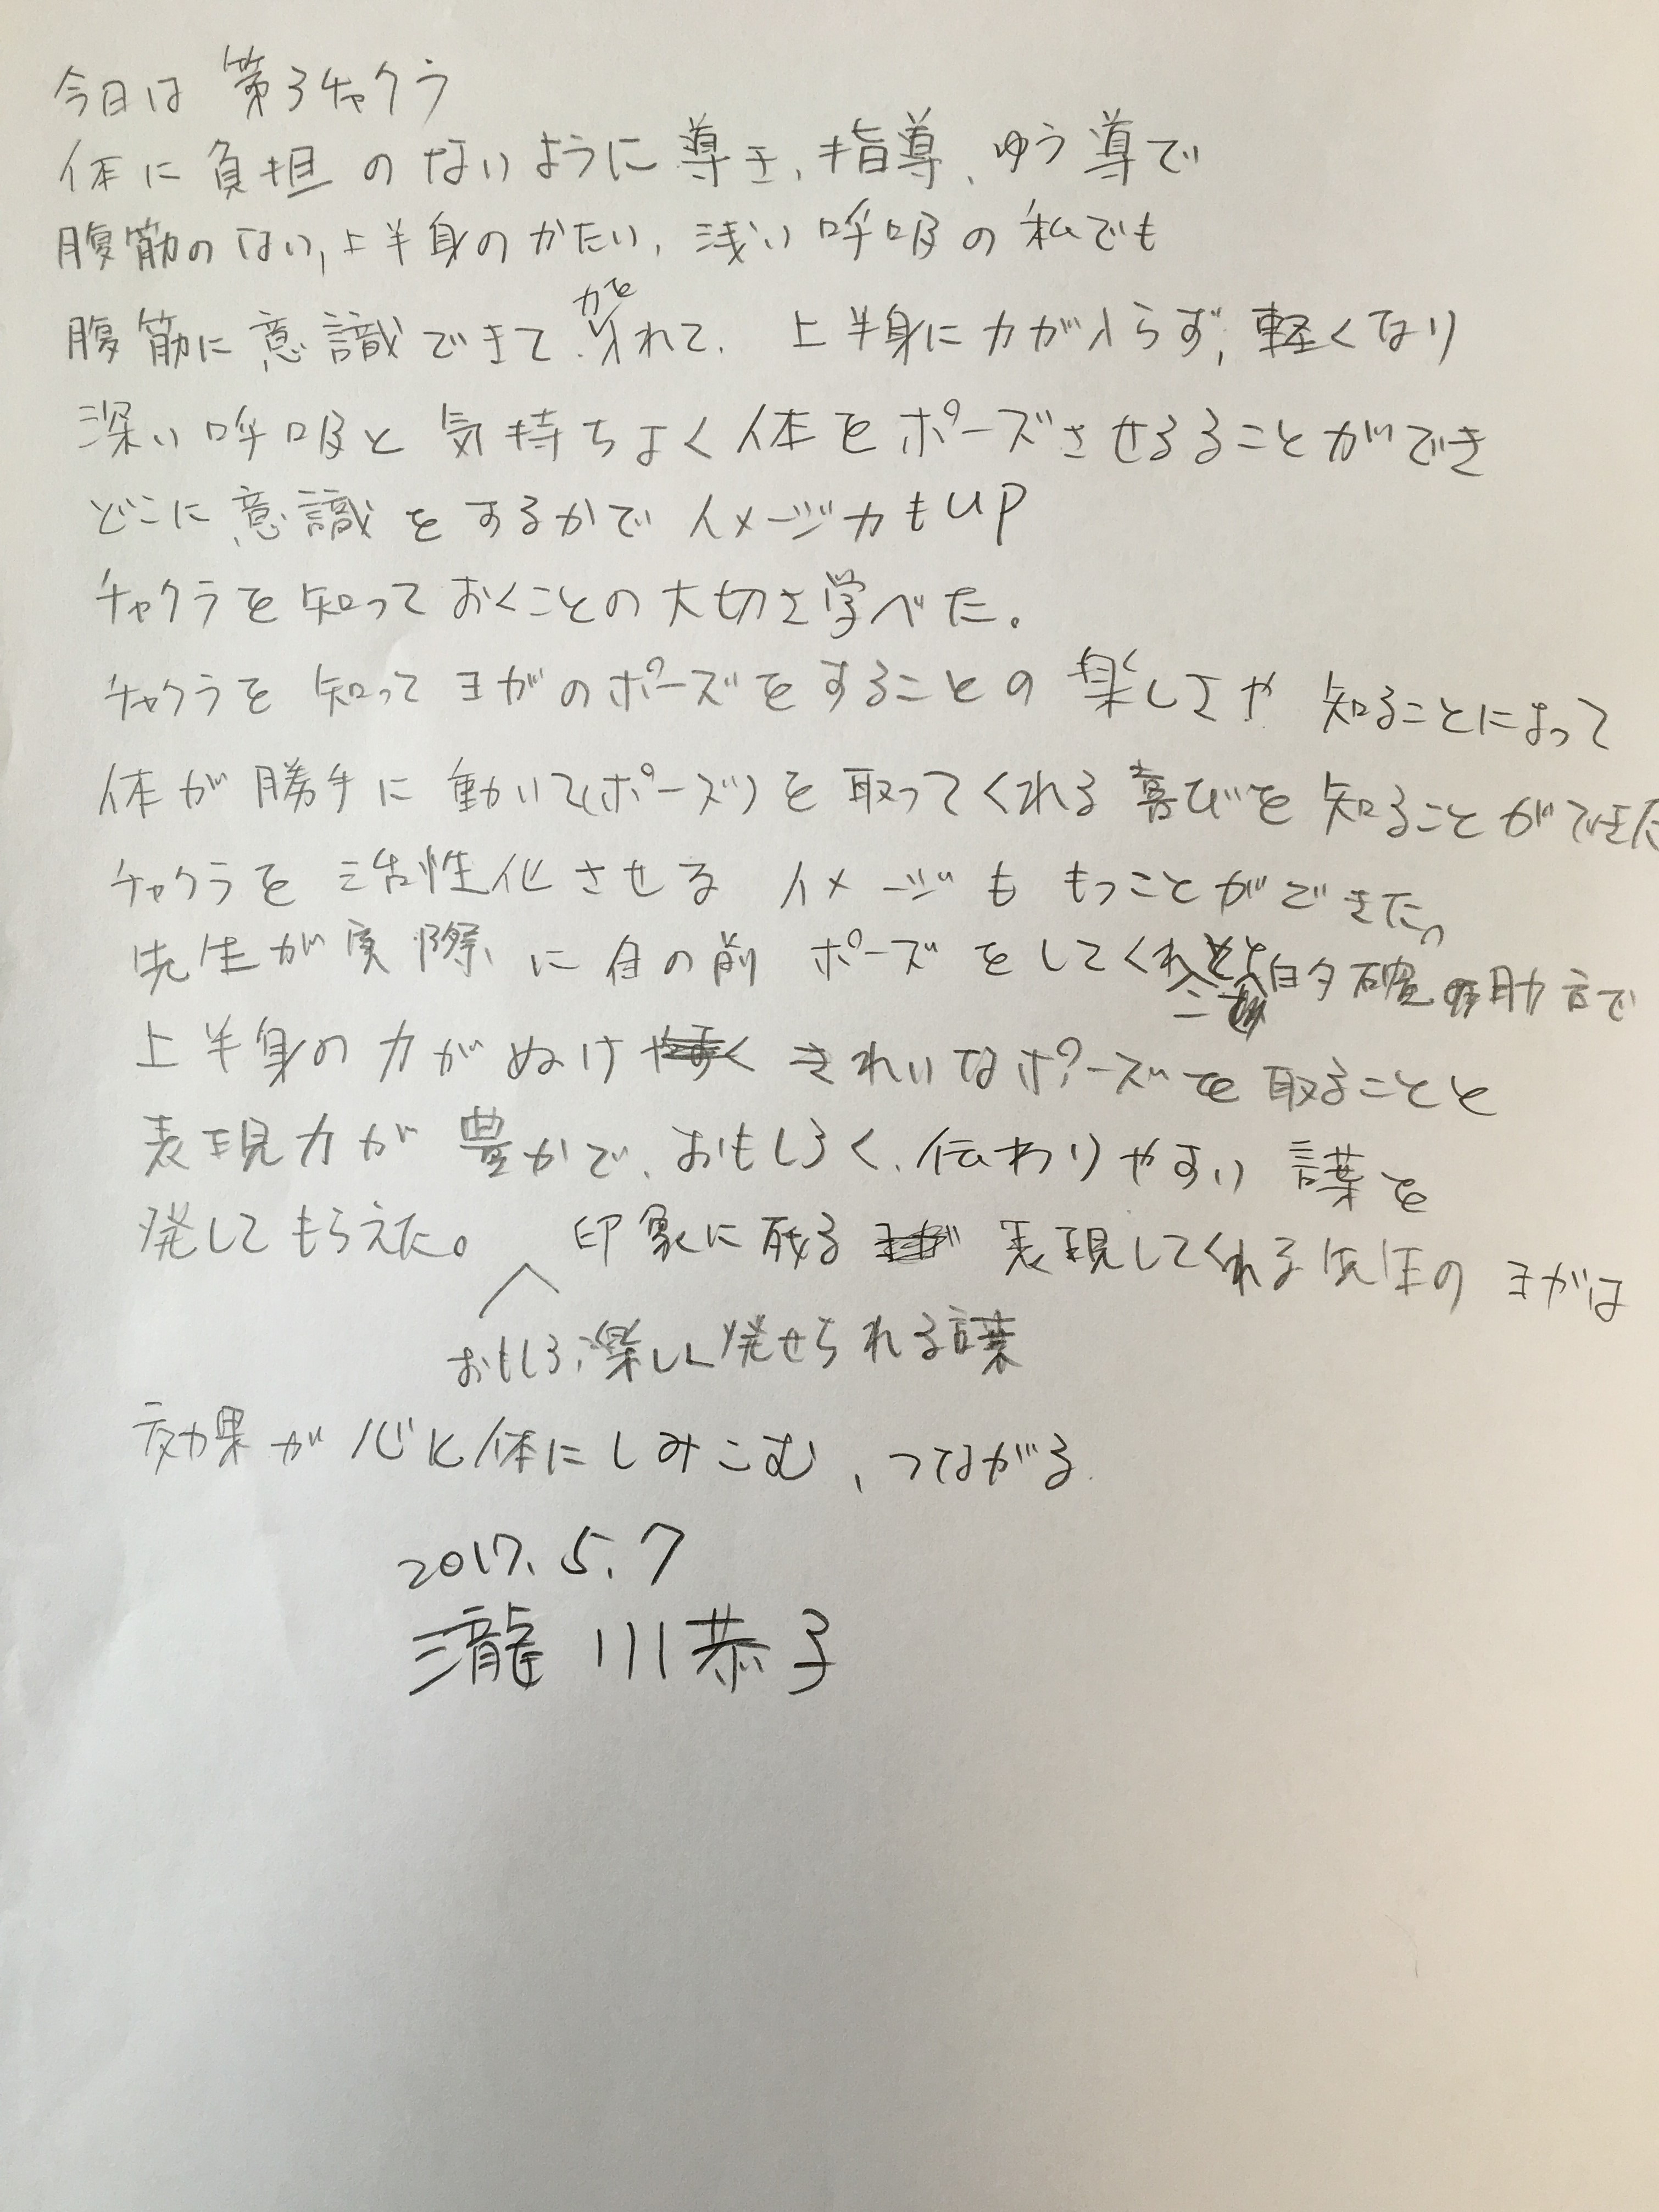 今日は 第3チャクラ
体に負担のないように導き、指導、ゆう導で
腹筋のない、上半身のかたい、浅い呼吸の私でも
腹筋に意識できて、力を入れて、上半身に力が入らず、軽くなり
深い呼吸と気持ちよく体をポーズさせるることができ
どこに意識をするかでイメージ力もUP
チャクラを知っておくことの大切さ学べた。
チャクラを知ってヨガのポーズをすることの楽しさや 知ることによって
体が勝手に動いて(ポーズ)を取ってくれる喜びを知ることができた
チャクラを活性化させる イメージも もつことができた。
先生が実際に目の前 ポーズをしてくれ 的確の助言で
上半身の力がぬけ きれいなポーズを取ることと
表現力が豊かで、おもしろく、伝わりやすい 言葉を
発してもらえた。 印象に残る 表現してくれる先生のヨガは
おもしろ、楽しく発せられる言葉
効果が心と体にしみこむ、つながる
2017.5.7
瀧川恭子